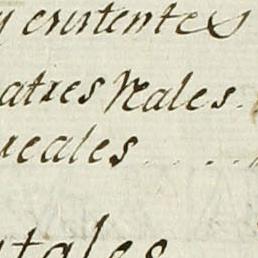 y existentes
atres Reales.
reales . . . .
tales